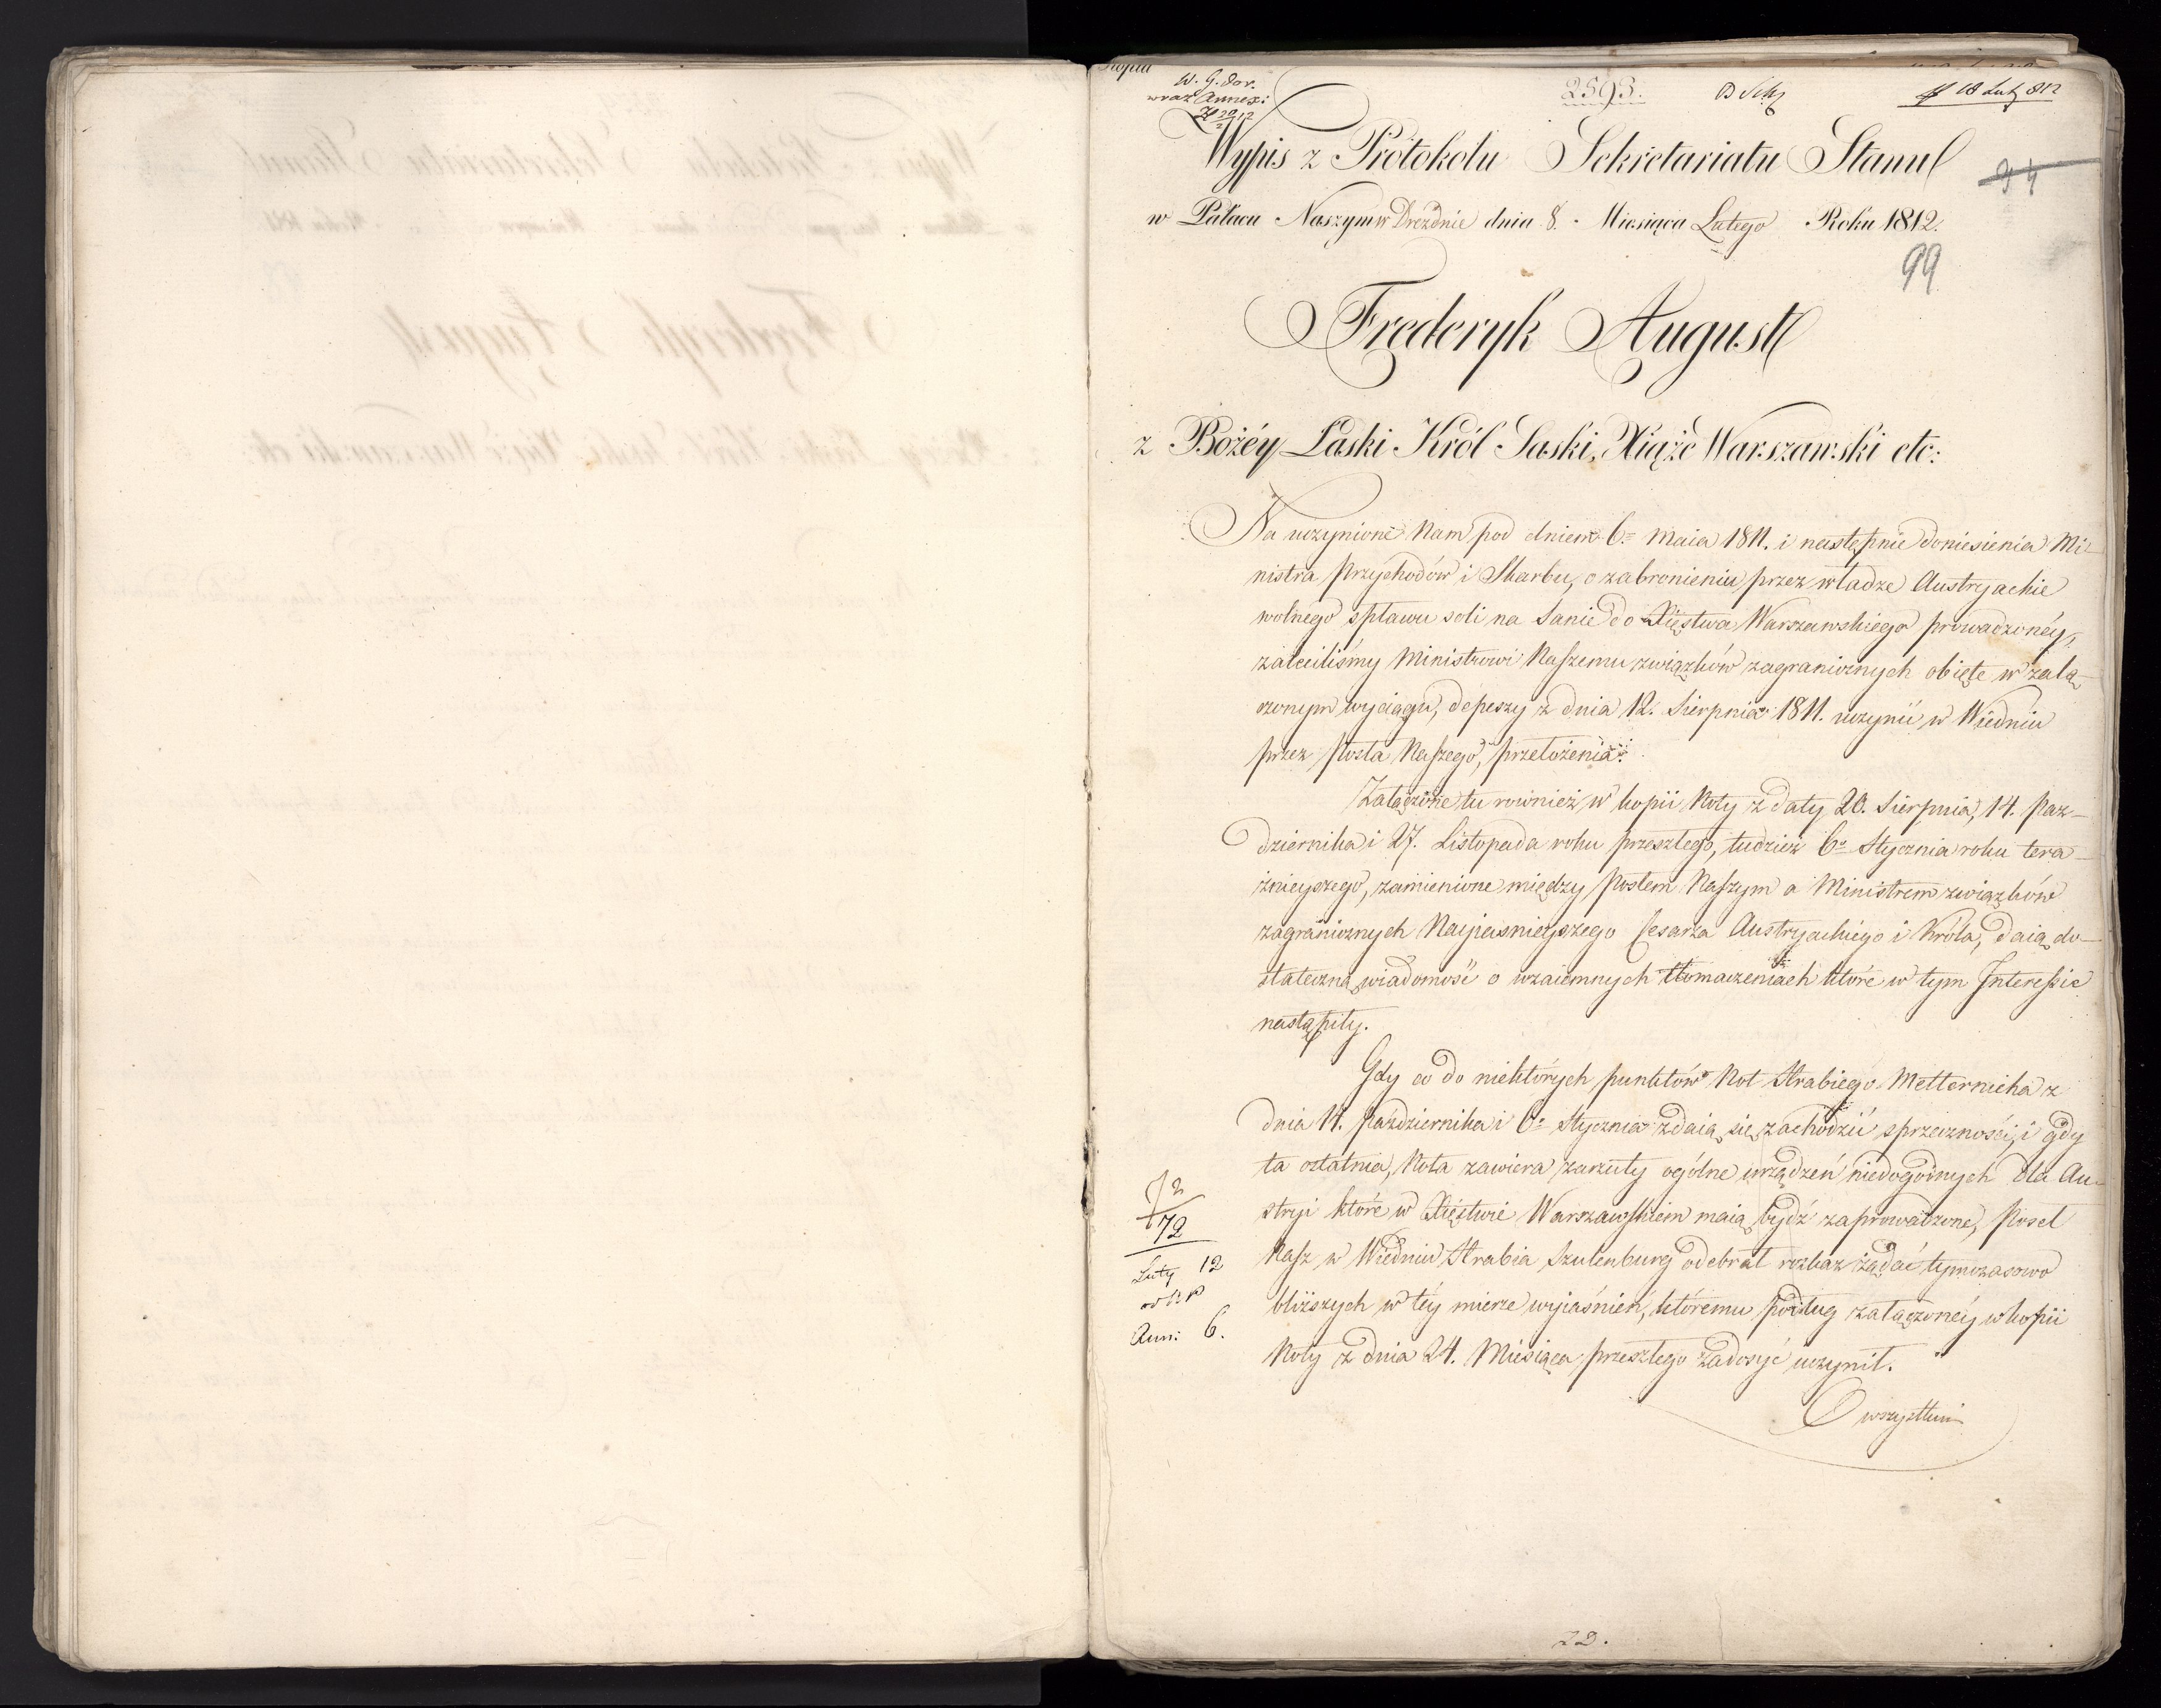 W. G. Dor.
wraz Annex:
2593.
18 Lut 812
Wypis z Protokołu Sekretariatu Stanu
34
w Pałacu Naszym w Dreźnie dnia 8. Miesiąca Lutego Roku 1812.
99
Frederyk August
z Bożéy Łaski Król Saski, Xiąże Warszawski etc:
Na uczynione Nam pod dniem 6. Maia 1811. i następnie doniesienia Mi-
nistra Przychodów i Skarbu, o zabronieniu przez władze Austryackie
wolnego spławu soli na Sanie do Xięstwa Warszawskiego prowadzonéy,
zaleciliśmy Ministrowi Naszemu związków zagranicznych obięte w załą-
czonym wyciągu, depeszy z dnia 12. Sierpnia 1811. uczynić w Wiedniu
przez Posła Naszego, przełożenia.
Załączone tu również w kopii Noty z daty 20. Sierpnia, 14. Paz-
dziernika i 27. Listopada roku przeszłego, tudzież 6. Stycznia roku tera-
znieyszego, zamienione między Posłem Naszym a Ministrem związków
zagranicznych Nayjasnieyszego Cesarza Austryackiego i Króla, daią do-
stateczną wiadomość o wzaiemnych tłomaczeniach które w tym Interessie
nastąpiły.
Gdy co do niektórych punktów Not Hrabiego Metternicha z
dnia 14. Października i 6. Stycznia zdaią się zachodzić sprzeczności, i gdy
ta ostatnia, Nota zawiera zarzuty ogólne urządzeń niedogodnych dla Au-
stryi które w Xięstwie Warszawskiem maią bydź zaprowadzone, Poseł
Nasz w Wiedniu Hrabia Szulenburg odebrał rozkaz żądać tymczasowo
bliższych w téy mierze wyiaśnień, któremu podług załączonéy w kopii
Noty z dnia 24. Miesiąca przeszłego zadosyć uczynił.
O wszystkim
72
Luty 12
Ann: 6.